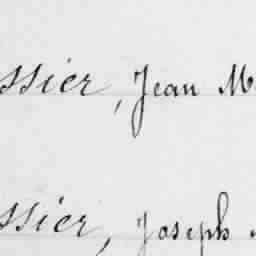 ssier, Jean M
ssier, Joseph